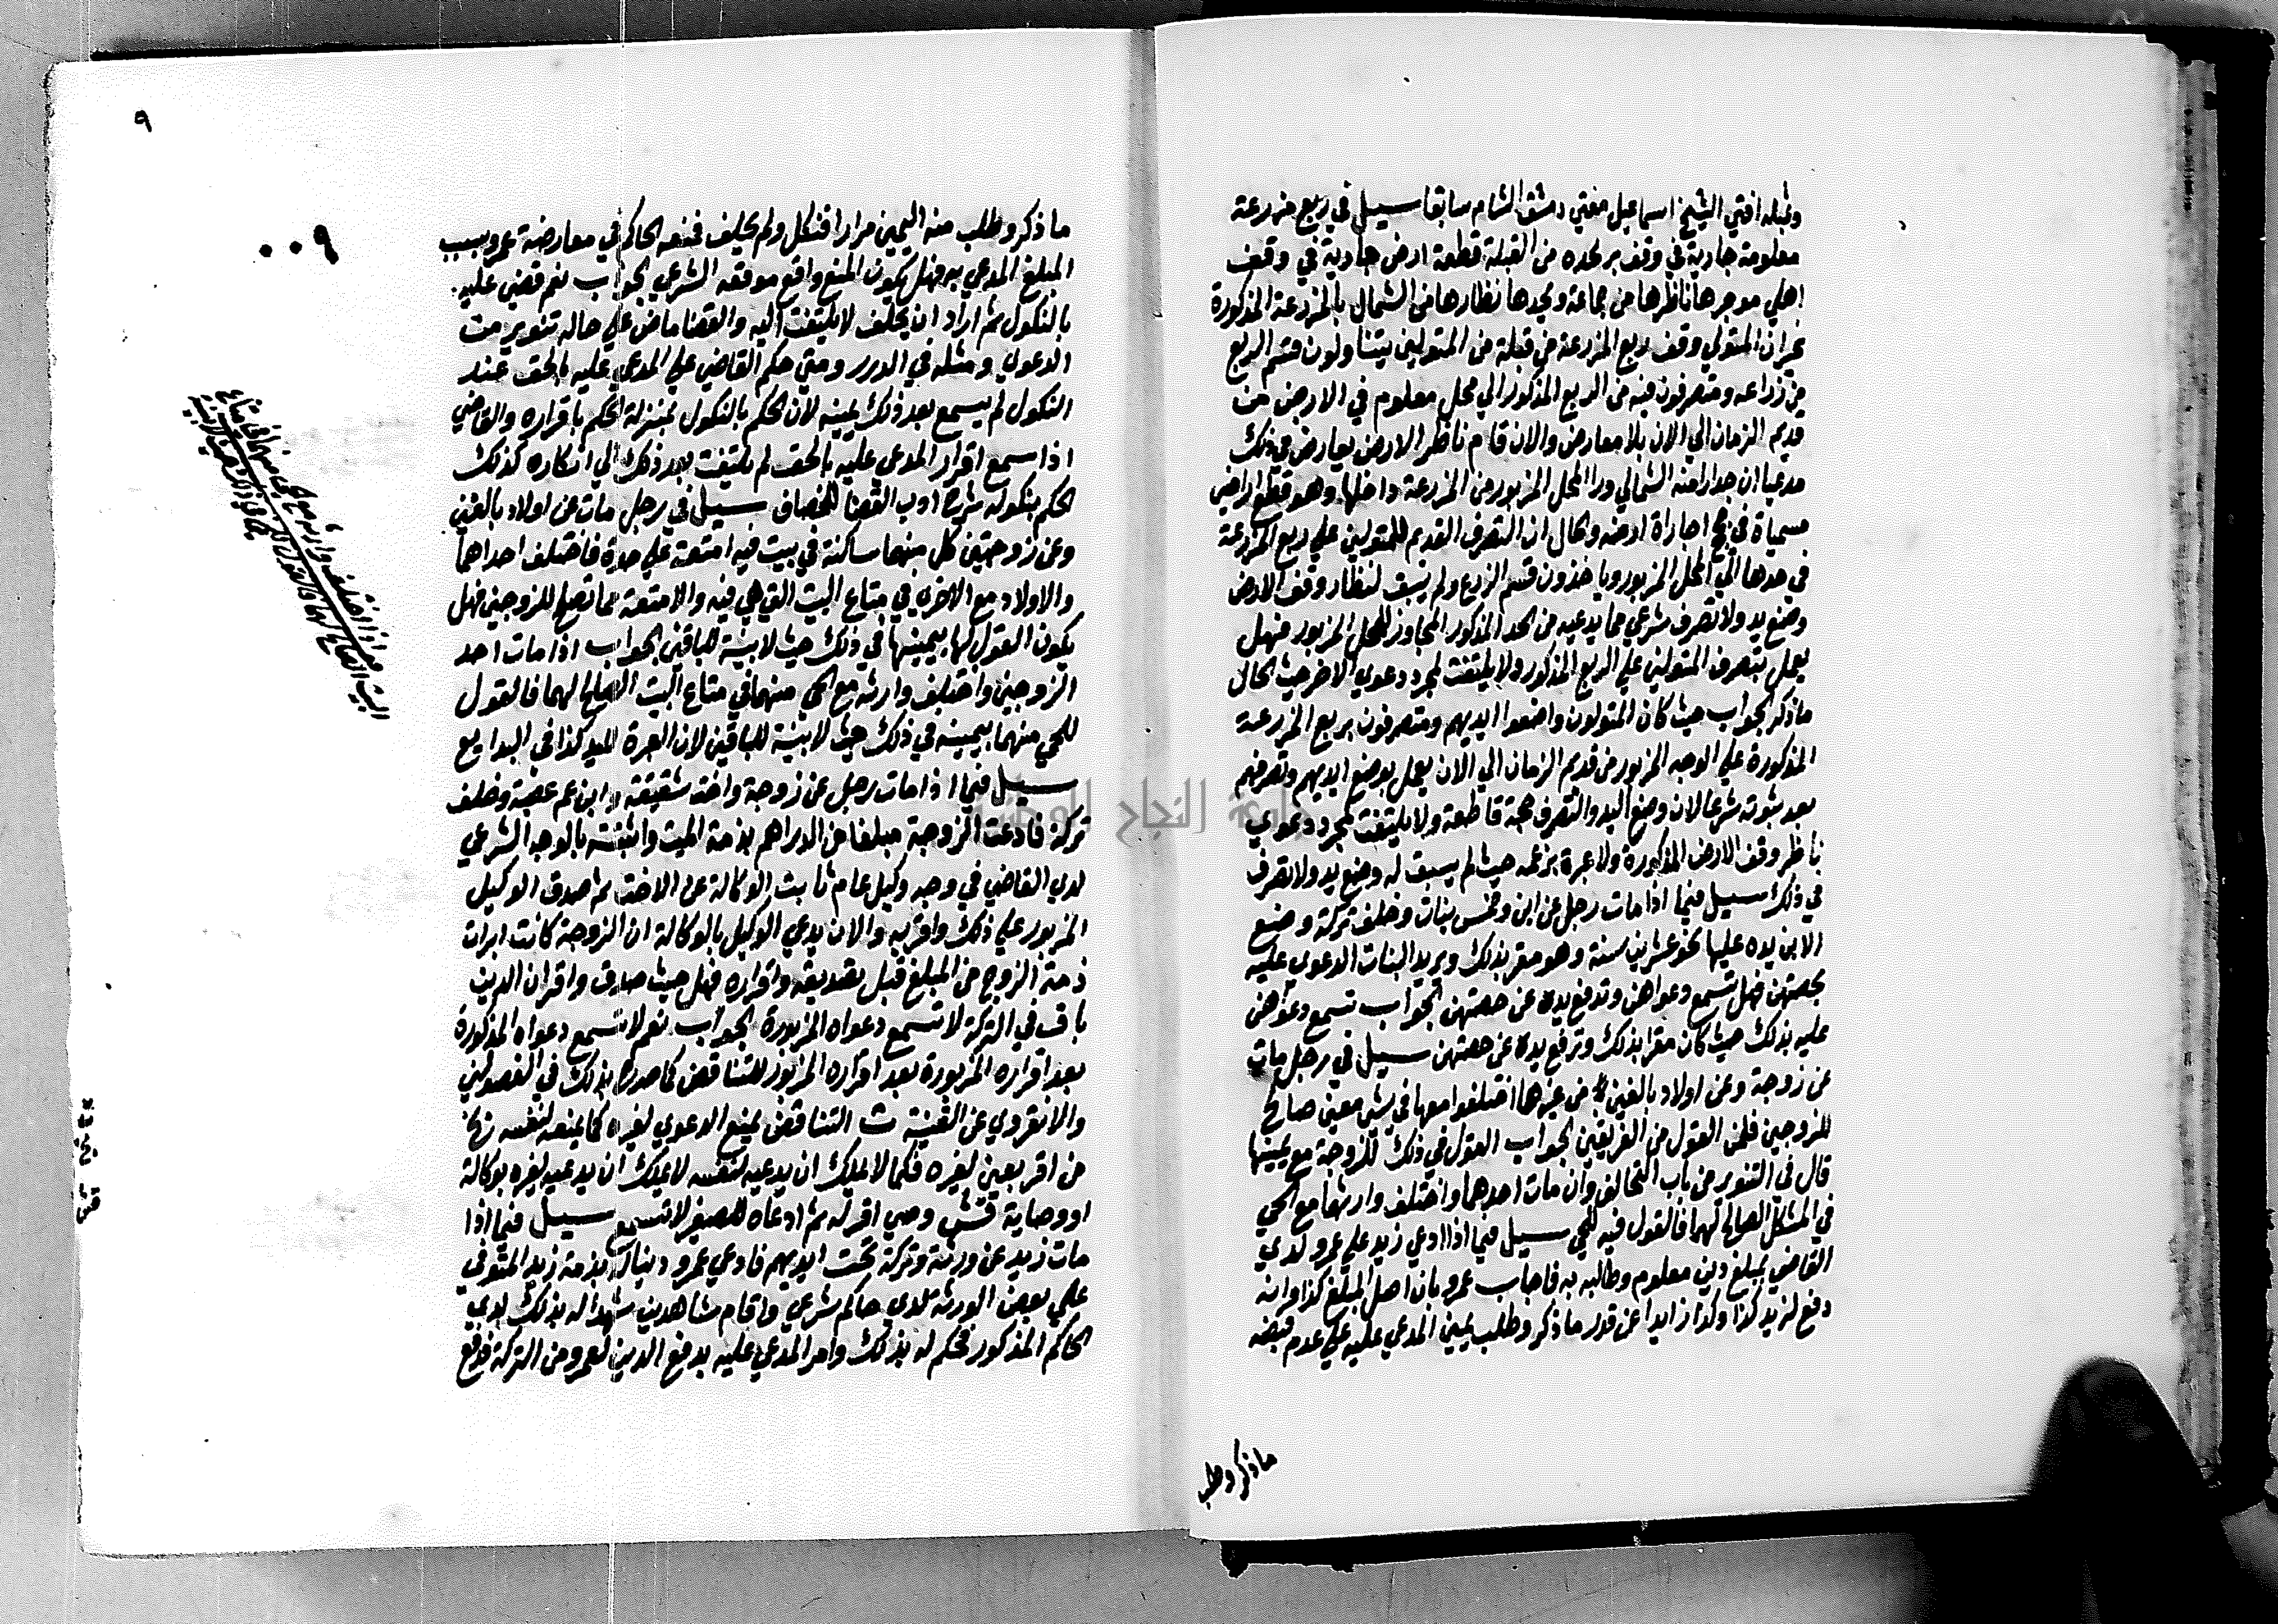 وبمثله افتي الشيخ اسماعيل مفتي دمشق الشام سابقا سيل في ربع مزرعة
معلومة جارية في وقف بر يحده من القبلة قطعة ارض جارية في وقف
اهلي موجرها ناظرها من جماعة ويحدها نظارها من الشمال بالمزرعة المذكورة
غير ان المتولي وقف ربع المزرعة من قبلة من المتولين يتناولون قسم الربع
من زراعه ومتصرفون فيه من الربع المذكور الي محل معلوم في الارض من
قديم الزمان الي الان بلا معارض والان قام ناظر الارض يعارض في ذلك
مدعيا ان جدار ارضه الشمالي ورا المحل المزبور من المزرعة داخلها وهو قطع اراضي
مسماة في حجج اجارة ارضه والحال ان التصرف القديم للمتولين علي ربع المزرعة
في حدها الي المحل المزبور وياخذون قسم الزرع ولم يسبق لنظار وقف الارض
وضع يد ولا تصرف شرعي مما يدعيه من الحد المذكور المجاوز للمحل المزبور فهل
يعمل بتصرف المتولين علي الربع المذكور ولا يلتفت لمجرد دعوي الاخر حيث الحال
ماذكر الجواب حيث كان المتولون واضعوا ايديهم ومتصرفون بربع المزرعة
المذكورة علي الوجه المزبور من قديم الزمان الي الان يعمل بوضع ايديهم وتصرفهم
بعد ثبوته شرعا لان وضع اليد والتصرف حجة قاطعة ولا يلتفت لمجرد دعوي
ناظر وقف الارض المذكورة ولا عبرة بزعمه حيث لم يسبق له وضع يد ولا تصرف
في ذلك سيل فيما اذا مات رجل عن ابن وخمس بنات وخلف تركة وضع
الابن يده عليها نحو عشرين سنة وهو مقر بذلك ويريد البنات الدعوي عليه
بحصتهن فهل تسمع دعواهن وترفع يده عن حصتهن الجواب تسمع دعواهن
عليه بذلك حيث كان مقرا بذلك وترفع يده عن حصتهن سيل في رجل مات
عن زوجة وعن اولاد بالغين من غيرها اختلفوا معها في شي معين صالح
للزوجين فلمن القول من الفريقين الجواب القول في ذلك للزوجة مع يمينها
قال في التنوير من باب التحالف وان مات احدهما واختلف وارثها مع الحي
في المشكل الصالح لهما فالقول فيه للحي سيل فيما اذا ادعي زيد علي عمرو لدي
القاضي بمبلغ دين معلوم وطالبه به فاجاب عمرو بان اصل المبلغ كذا وانه
دفع لزيد كذا وكذا زايدا عن قدر ما ذكر وطلب يمين المدعي عليه علي عدم قبضه
ماذكر وطلب
٩
٠٠٩
ما ذكر وطلب منه اليمين مرارا فنكل ولم يحلف فمنعه الحاكم في معارضة عمرو بسبب
المبلغ المدعي به فهل يكون المنع واقع موقعه الشرعي الجواب نعم قضي عليه
بالنكول ثم اراد ان يحلف لا يلتفت اليه والقضا ماض علي حاله تنوير من
الدعوي ومثله في الدرر ومتي حكم القاضي علي المدعي عليه بالحق عند
النكول لم يسمع بعد ذلك يمينه لان الحكم بالنكول بمنزلة الحكم باقراره والقاضي
اذا سمع اقرار المدعي عليه بالحق لم يلتفت بعد ذلك الي انكاره كذلك
الحكم بنكوله شرح ادب القضا للخصاف سيل في رجل مات عن اولاد بالغين
وعن زوجتين كل منهما ساكنة في بيت فيه امتعة علي حدة فاختلف احداهما
والاولاد مع الاخري في متاع البيت التي هي فيه والامتعة مما تصلح للزوجين فهل
يكون القول لها بيمينها في ذلك حيث لا بينة للباقين الجواب اذا مات احد
الزوجين واختلف وارثه مع الحي منهما في متاع البيت الصالح لهما فالقول
للحي منهما بيمينه في ذلك حيث لا بينة للباقين لان العبرة لليد كذا في البدايع
سيل فيما اذا مات رجل عن زوجة واخت شقيقة وابن عم عصبة وخلف
تركة فادعت الزوجة مبلغا من الدراهم بذمة الميت واثبتته بالوجه الشرعي
لدي القاضي في وجه وكيل عام ثابت الوكالة عن الاخت ثم صدق الوكيل
المزبور علي ذلك واقر به والان يدعي الوكيل بالوكالة ان الزوجة كانت ابرات
ذمة الزوج من المبلغ قبل تصديقه واقراره فهل حيث صادق واقر ان الدين
باق في التركة لا تسمع دعواه المزبورة الجواب نعم لا تسمع دعواه المذكورة
بعد اقراره المزبورة بعد اقراره المزبور للتناقض كما صدره بذلك في الفصولين
والانقروي عن القنية ث التناقض يمنع الدعوي لغيره كما يمنعه لنفسه زخ
من اقر بعين لغيره فكما لا يملك ان يدعيه لنفسه لا يملك ان يدعيه لغيره بوكالة
او وصاية قش وصي اقر له ثم ادعاه للصغير لا تسمع سيل فيما اذا
مات زيد عن ورثة وتركة تحت ايديهم فادعي عمرو دينا له بذمة زيد المتوفي
علي بعض الورثة لدي حاكم شرعي واقام شاهدين شهدا له بذلك لدي
الحاكم المذكور فحكم له بذلك وامر المدعي عليه بدفع الدين لعمرو من التركة فدفع
جامعة النجاح الوطنية